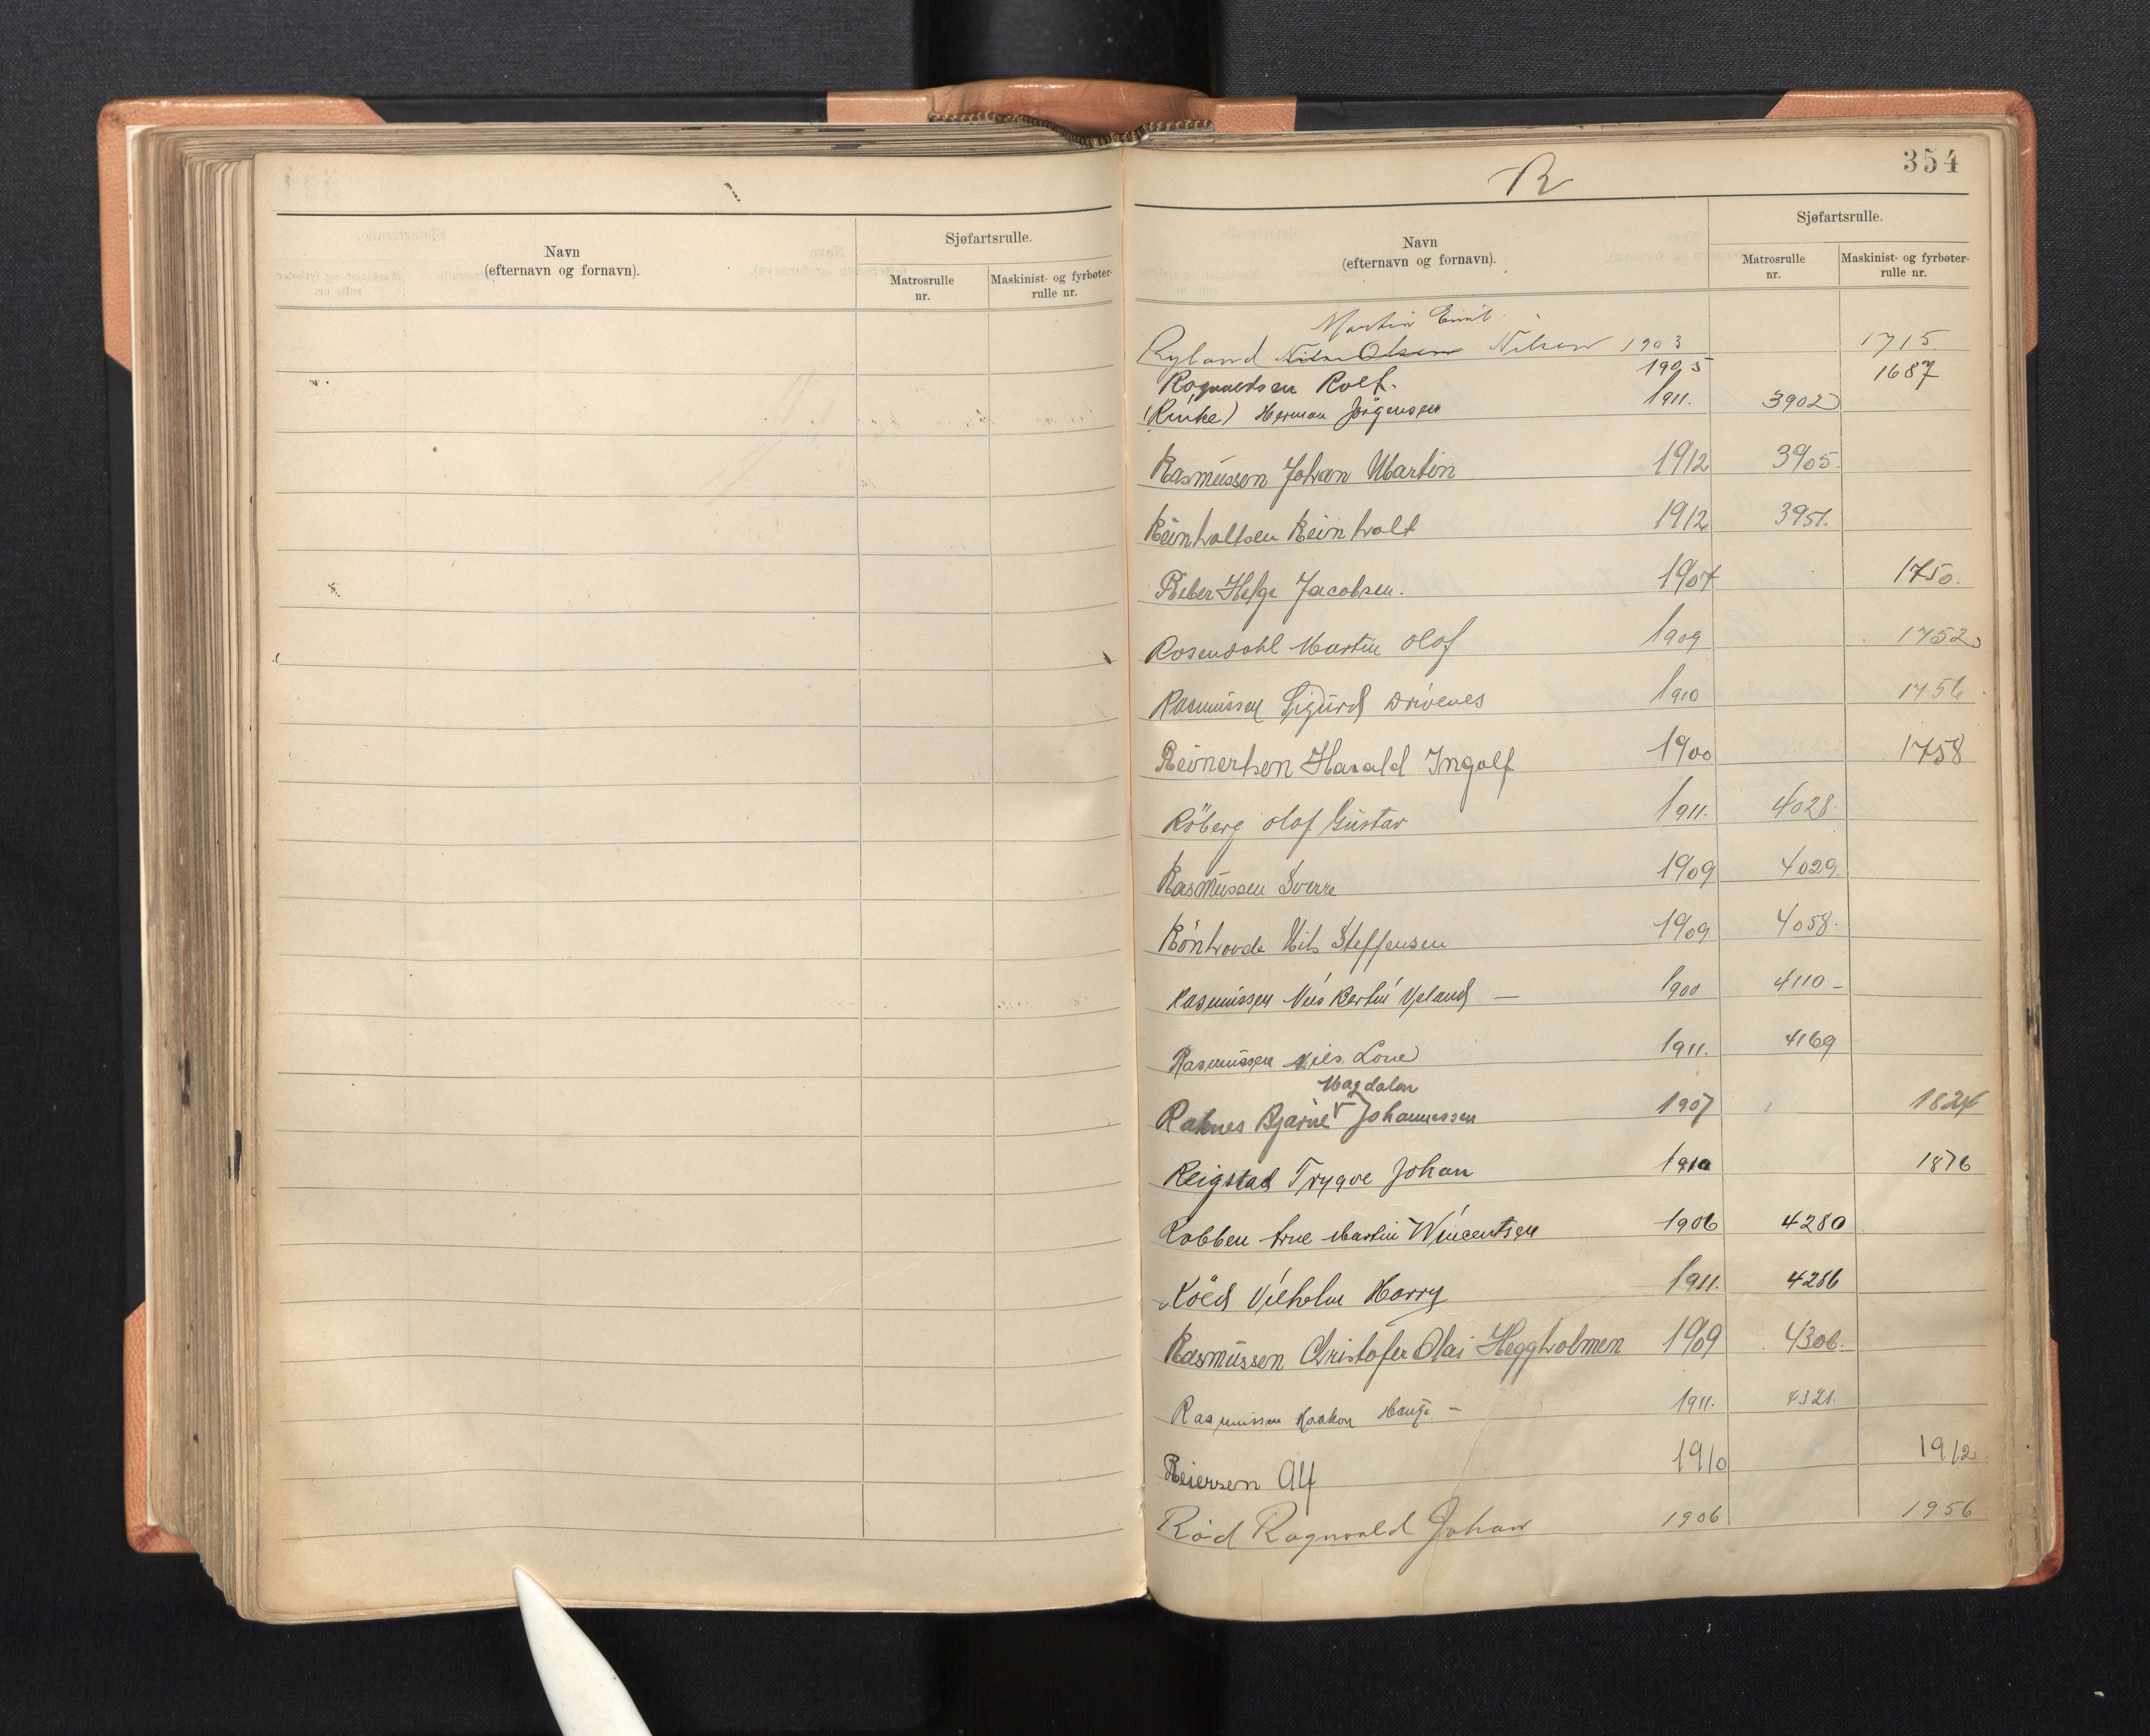 Navn
(efternavn og fornavn).
Sjøfartsrulle.
Matrosrulle
nr.
Maskinist- og fyrbøter-
rulle nr.
354
R
Navn
(efternavn og fornavn).
Sjøfartsrulle.
Matrosrulle
nr.
Maskinist- og fyrbøter-
rulle nr.
Martin Emil
Ryland Nils Olsen Nilsen 1903 1715
Rognaldsen Rolf. 1905 1687
(Rinke) Herman Jörgensen 1911. 3902
Rasmussen Johan Martin 1912 3905.
Reinholtsen Reinholt 1912 3951.
Reber Helge Jacobsen. 1907 1750.
Rosendohl Martin Olof 1909 1752
Rasmussen Sigurd Drivenes 1910 1756
Reinertsen Harald Ingolf 1900 1758
Röberg Olof Gustav 1911. 4028.
Rasmussen Sverre 1909 4029.
Rönhovde Nils Steffensen 1909 4058.
Rasmussen Nils Bertin Veland — 1900 4110 -
Rasmussen Nils Lone 1911. 4169
Magdalon
Raknes Bjarne Johannessen 1907 1824
Reigstad Trygve Johan 1910 1876
Robben Arne Martin Wincentsen 1906 4280
Röed Vilhelm Harry 1911. 4286
Rasmussen Christofer Olai Heggholmen 1909 4306.
Rasmussen Haakon Hauge - 1911. 4321.
Reiersen Alf 1910 1912
Röd Ragnvald Johan 1906 1956